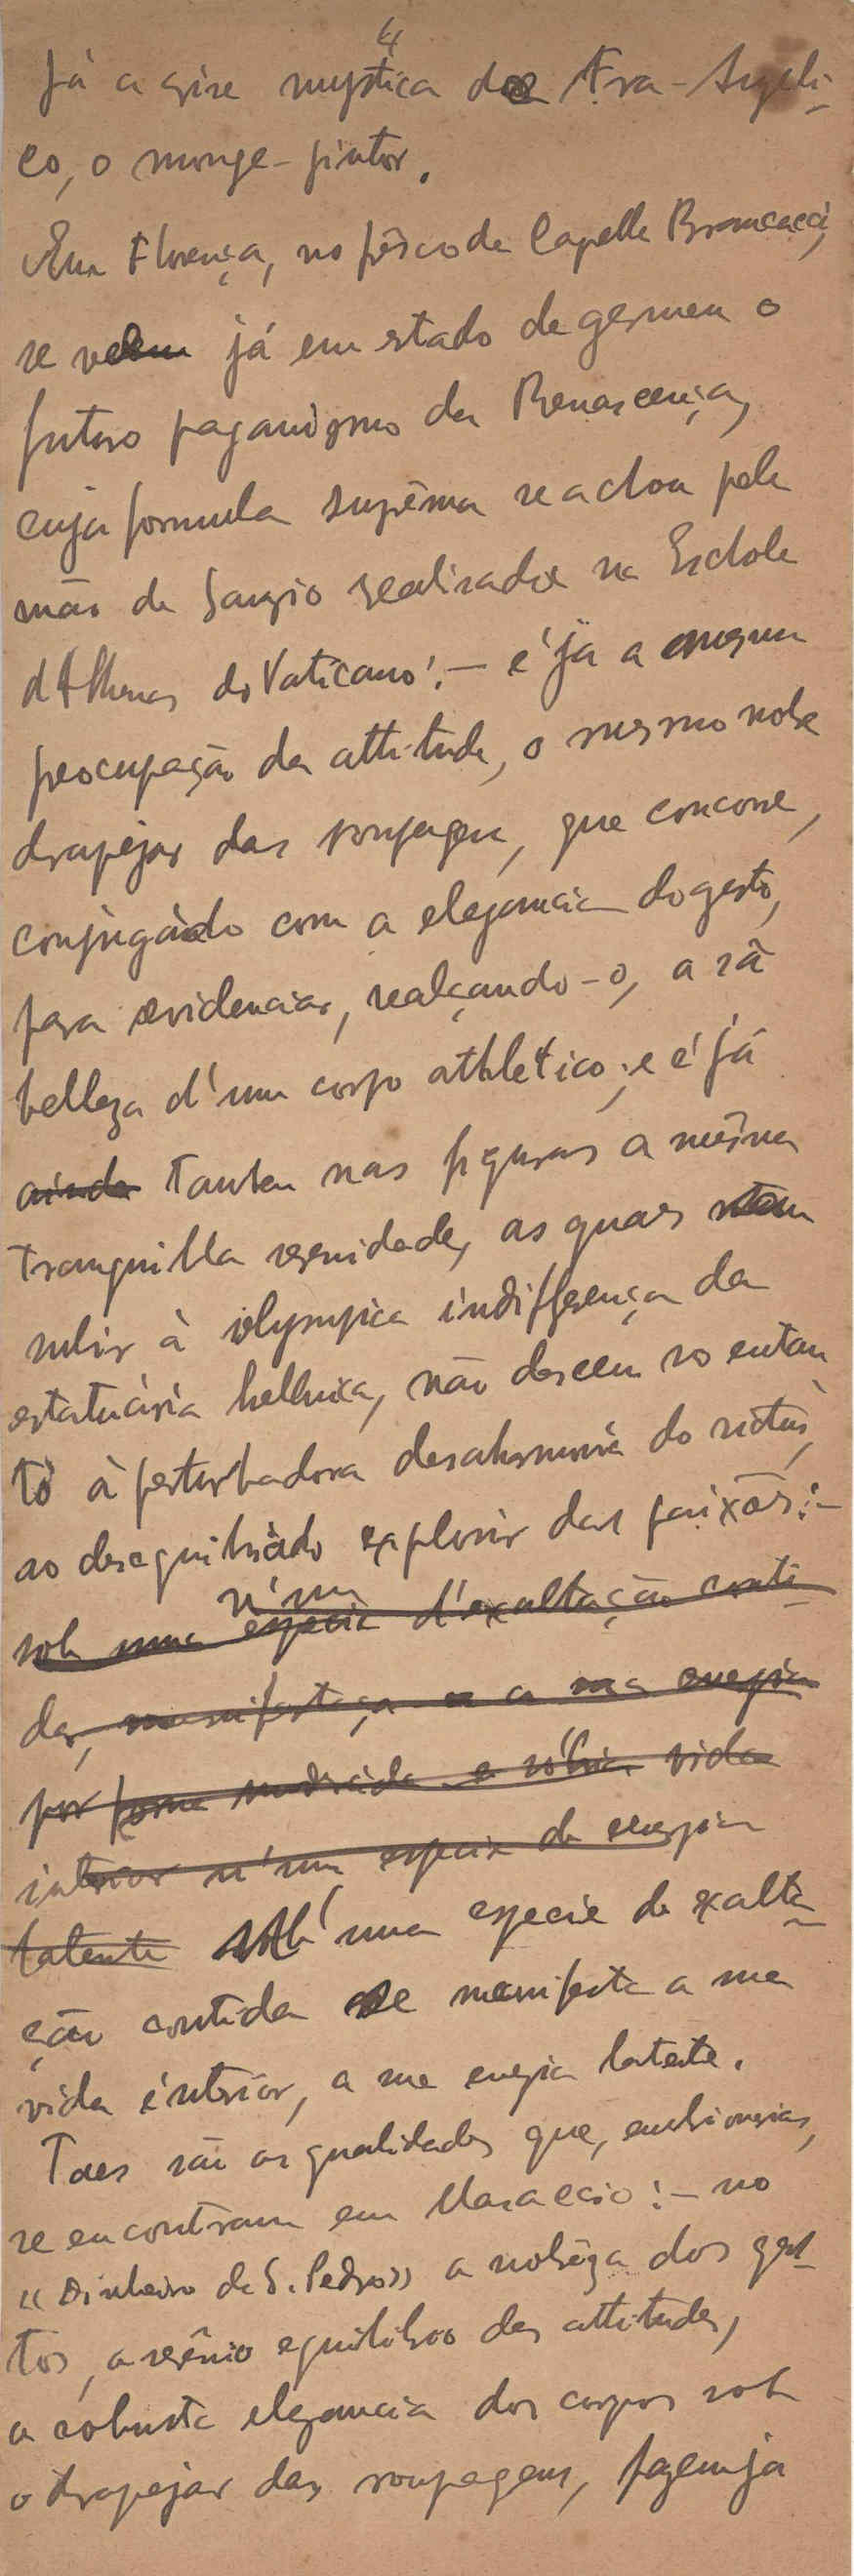 4
já a crise mystica de Fra-Angeli-
co, o monge-pintor.
Em Florença, no frêsco da Capella Brancacci,
se vê já em estado de germen o
futuro paganismo da Renascença,
cuja formula suprêma se achou pela
mão de Sanzio realisada na Eschola
d'Athenas do Vaticano: — é já a mesma
preocupação da attitude, o mesmo nobre
drapejar das roupagens, que concorre,
conjugado com a elegancia do gesto,
para evidenciar, realçando-o, a sã
belleza d'um corpo athletico; e é já
ainda tambem nas figuras a mesma
tranquilla serenidade, as quaes sem
subir à olympica indifferença da
estatuária hellenica, não descem no entan
to à perturbadora desarmonia do rictus,
ao desequilibrado explosir das paixões: —
n'uma
sob uma especie d'exaltação conti-
da, manifesta a sua energia
por forma moderada e sóbria vida
interior n'uma especie de energia
latente sob uma especie de exalta-
ção contida se manifesta a sua
vida interior, a sua energia latente.
Taes são as qualidades que, embrionarias,
se encontram em Masaccio: — no
«Dinheiro de S. Pedro» a nobrêza dos ges-
tos, o serêno equilibrio das attitudes,
a robusta elegancia dos corpos sob
o drapejar das roupagens, fazem já